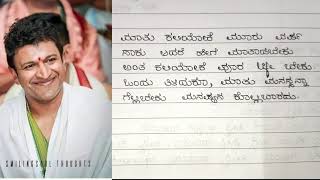 ಮಾತು ಕಲಿಯೋಕೆ ಮೂರು ವರ್ಷ
ಸಾಕು ಆದರೆ ಹೇಗೆ ಮಾತಾಡಬೇಕು
ಅಂತ ಕಲಿಯೋಕೆ ಪೂರ ಬೇಕು.
ಒಂದು ತಿಳಿಯಕೂ, ಮಾತು ಮನಸ್ಸನ್ನಾ
ಗೆಲ್ಲಬೇಕು ಮನಷ್ಯನ ಕೊಲ್ಲಬಾರದು.
SMILINGSOUL THOUGHTS